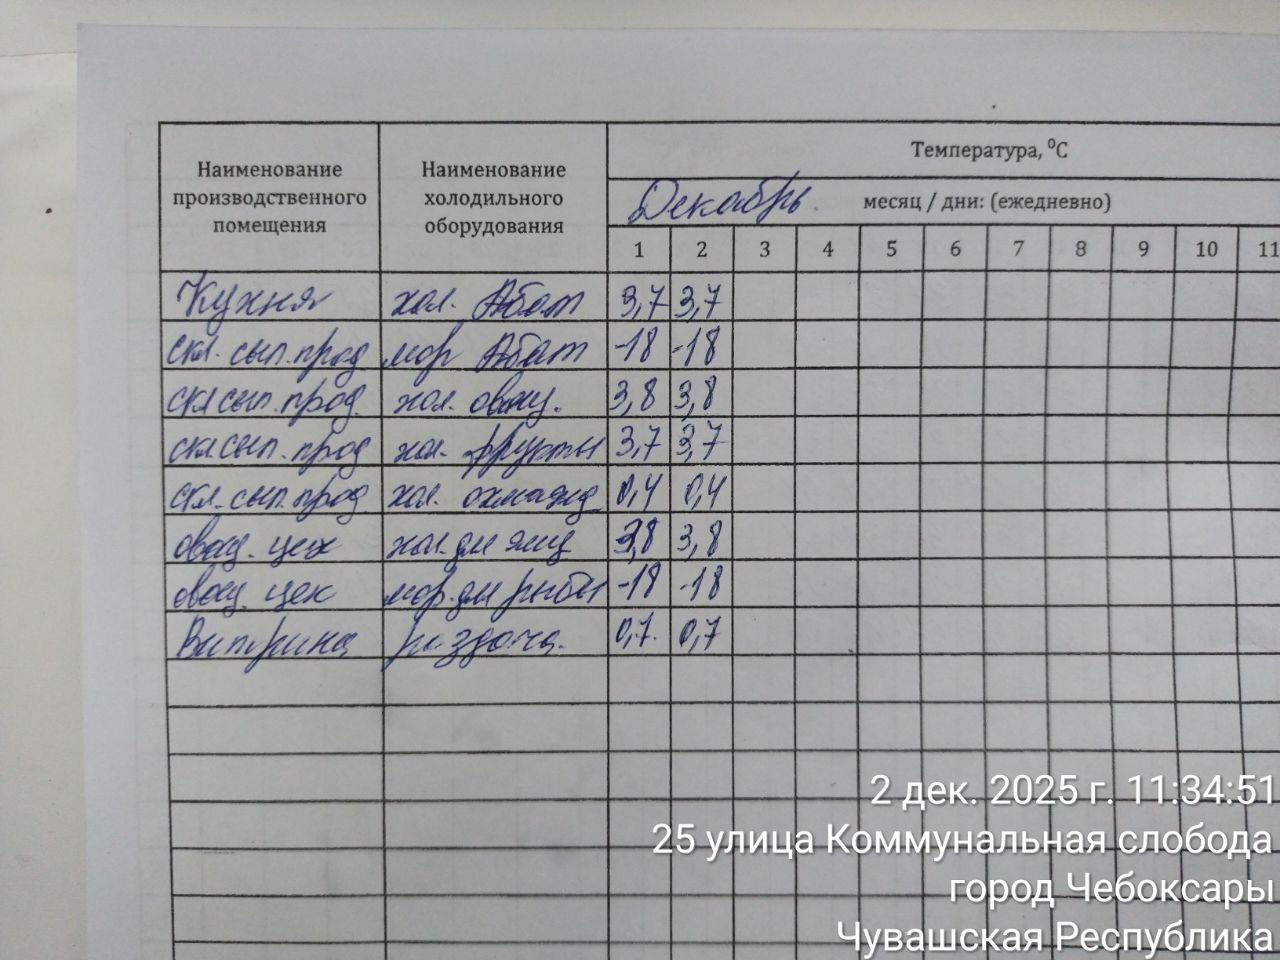 Наименование производственного помещения
Наименование холодильного оборудования
Температура, ⁰С
Декабрь. месяц / дни: (ежедневно)
1 2 3 4 5 6 7 8 9 10 11
Кухня хол. Абат 3,7 3,7
скл. сып. прод мор Абат -18 -18
скл сып. прод. хол. овощ. 3,8 3,8
скл сып. прод хол. фрукты 3,7 3,7
скл. сып. прод хол. охлажд 0,4 0,4
овощ. цех хол. дл яиц 3,8 3,8
овощ. цех мор. дл рыбы -18 -18
Витрина раздача. 0,7. 0,7
2 дек. 2025 г. 11:34:51
25 улица Коммунальная слобода
город Чебоксары
Чувашская Республика